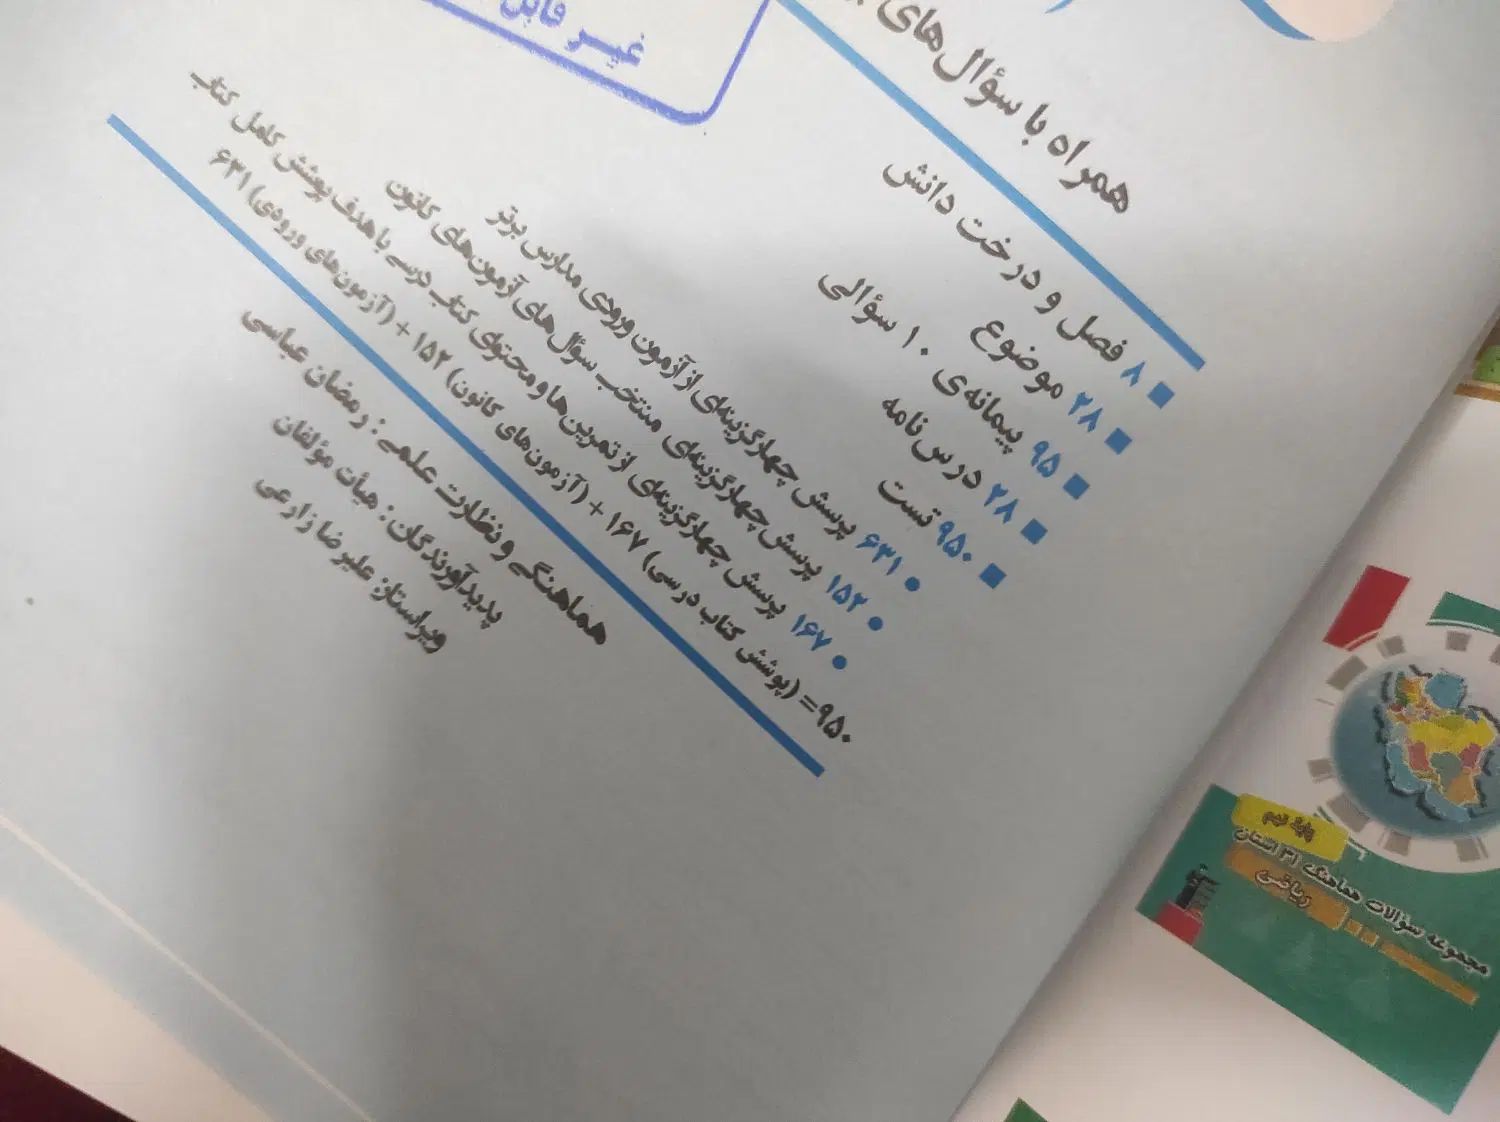 غیر قابل
همراه با سؤال‌های
■ ۸ فصل و درخت دانش
■ ۲۸ موضوع
■ ۹۵ پیمانه‌ی ۱۰ سؤالی
■ ۲۸ درس‌نامه
■ ۹۵۰ تست
● ۶۳۱ پرسش چهارگزینه‌ای از آزمون ورودی مدارس برتر
● ۱۵۲ پرسش چهارگزینه‌ای منتخب سؤال‌های آزمون‌های کانون
● ۱۶۷ پرسش چهارگزینه‌ای از تمرین‌ها و محتوای کتاب درسی با هدف پوشش کامل کتاب
۹۵۰= (پوشش کتاب درسی) ۱۶۷ + (آزمون‌های کانون) ۱۵۲ + (آزمون‌های ورودی) ۶۳۱
هماهنگی و نظارت علمی: رمضان عباسی
پدیدآورندگان: هیأت مؤلفان
ویراستار: علیرضا زارعی
پایه نهم
مجموعه سؤالات هماهنگ ۳۱ استان
ریاضی